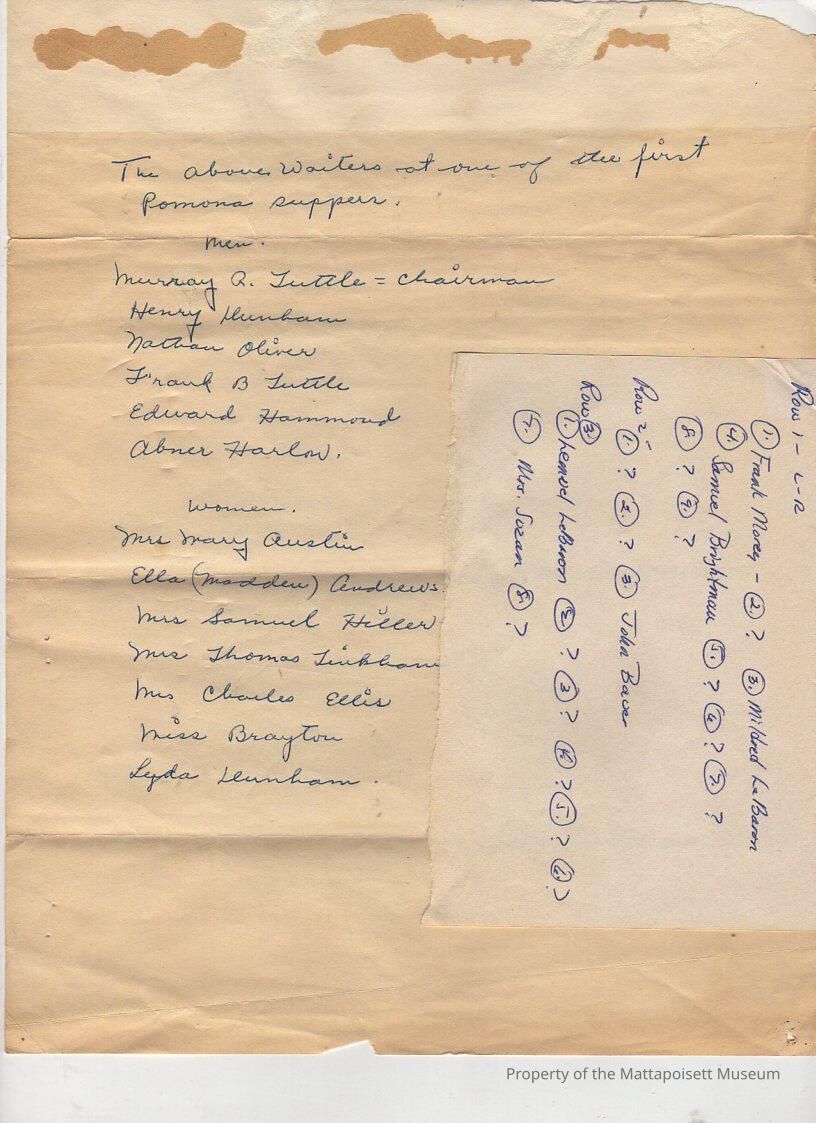 The above Waiters at one of the first
Pomona suppers.
Men.
Murray A. Tuttle = Chairman
Henry Dunham
Nathan Oliver
Frank B Tuttle
Edward Hammond
Abner Harlow.
Women.
Mrs Mary Austin
Ella (Madden) Andrews.
Mrs Samuel Hiller
Mrs Thomas Tinkham
Mrs Charles Ellis
Miss Brayton
Lyda Dunham.
Row 1 - L-R
1. Frank Morey - 2. ? 3. Mildred LeBaron
4. Samuel Brightman 5. ? 6 ? 7. ?
8. ? 9. ?
Row 2
1. ? 2. ? 3. John Bauer
Row 3
1. Lemuel LeBaron 2 ? 3 ? 4 ? 5. ? 6 ?
7. Mrs. Suzan 8. ?
Property of the Mattapoisett Museum